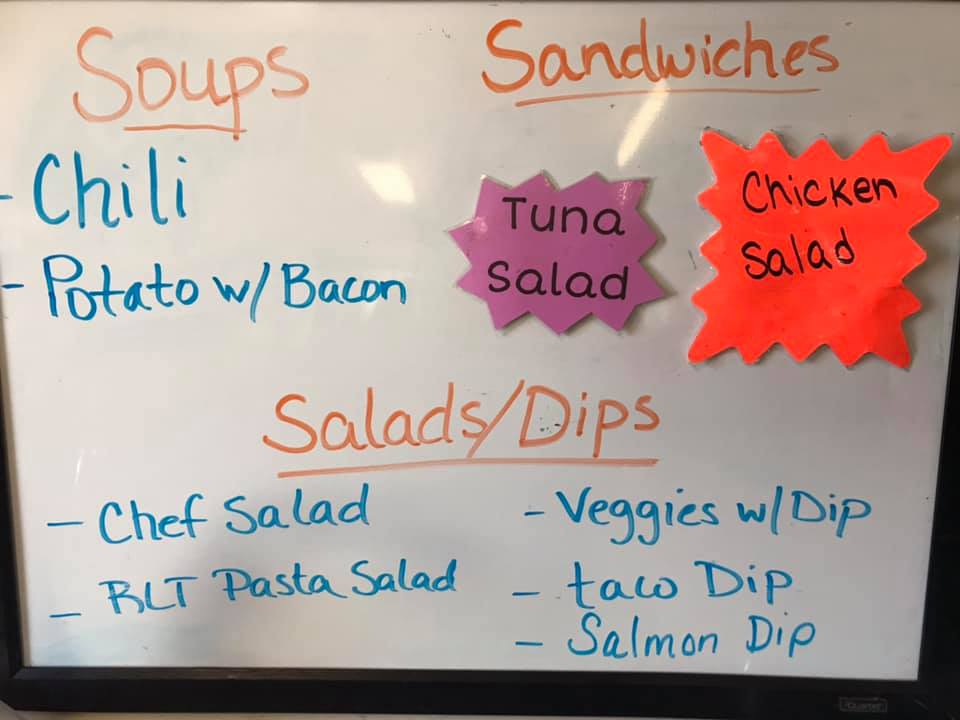 Soups
- Chili
- Potato w/ Bacon
Sandwiches
Tuna
Salad
Chicken
Salad
Salads/Dips
- Chef Salad
- BLT Pasta Salad
- Veggies w/ Dip
- taco Dip
- Salmon Dip
Quartet